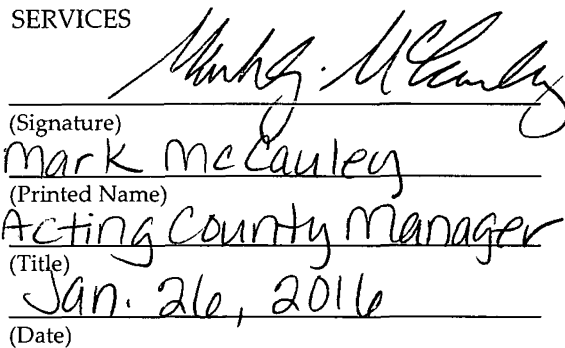 SERVICES
Mark McCauley
(Signature)
Mark McCauley
(Printed Name)
Acting County Manager
(Title)
Jan. 26, 2016
(Date)